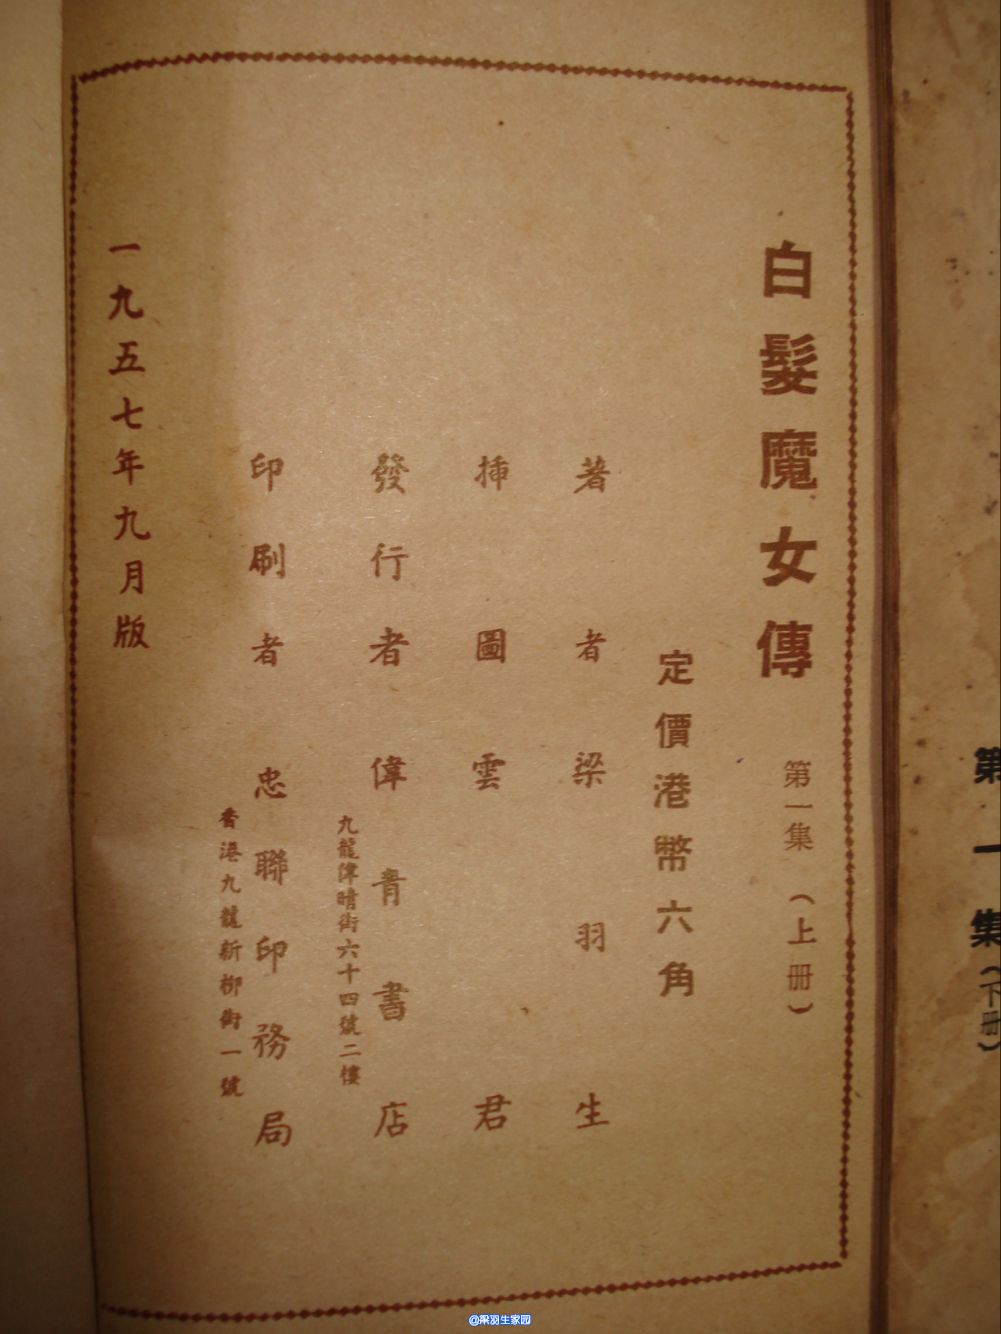 白髮魔女傳 第一集 (上册)
定價港幣六角
著者 梁羽生
揷圖 雲君
發行者 偉青書店
九龍漳晴街六十四號二樓
印刷者 忠聯印務局
香港九龍新柳街一號
一九五七年九月版
第一集(下册)
@梁羽生家园